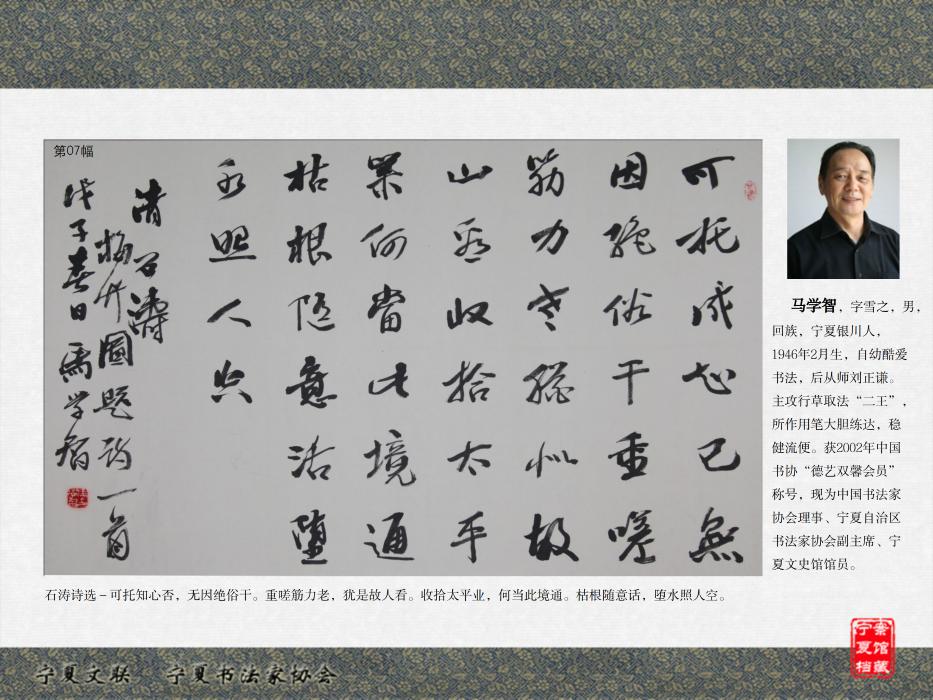 第07幅
可托成心已無
因絕俗干重嗟
筋力老似故
山看收拾太平
業何當此境通
枯根隨意活墮
水照人空
清石濤
梅竹圖題詩一首
戊子春日馬学智
马学智，字雪之，男，
回族，宁夏银川人，
1946年2月生，自幼酷爱
书法，后从师刘正谦。
主攻行草取法“二王”，
所作用笔大胆练达，稳
健流便。获2002年中国
书协“德艺双馨会员”
称号，现为中国书法家
协会理事、宁夏自治区
书法家协会副主席、宁
夏文史馆馆员。
石涛诗选－可托知心否，无因绝俗干。重嗟筋力老，犹是故人看。收拾太平业，何当此境通。枯根随意话，堕水照人空。
宁夏文联 宁夏书法家协会
宁夏档案馆藏